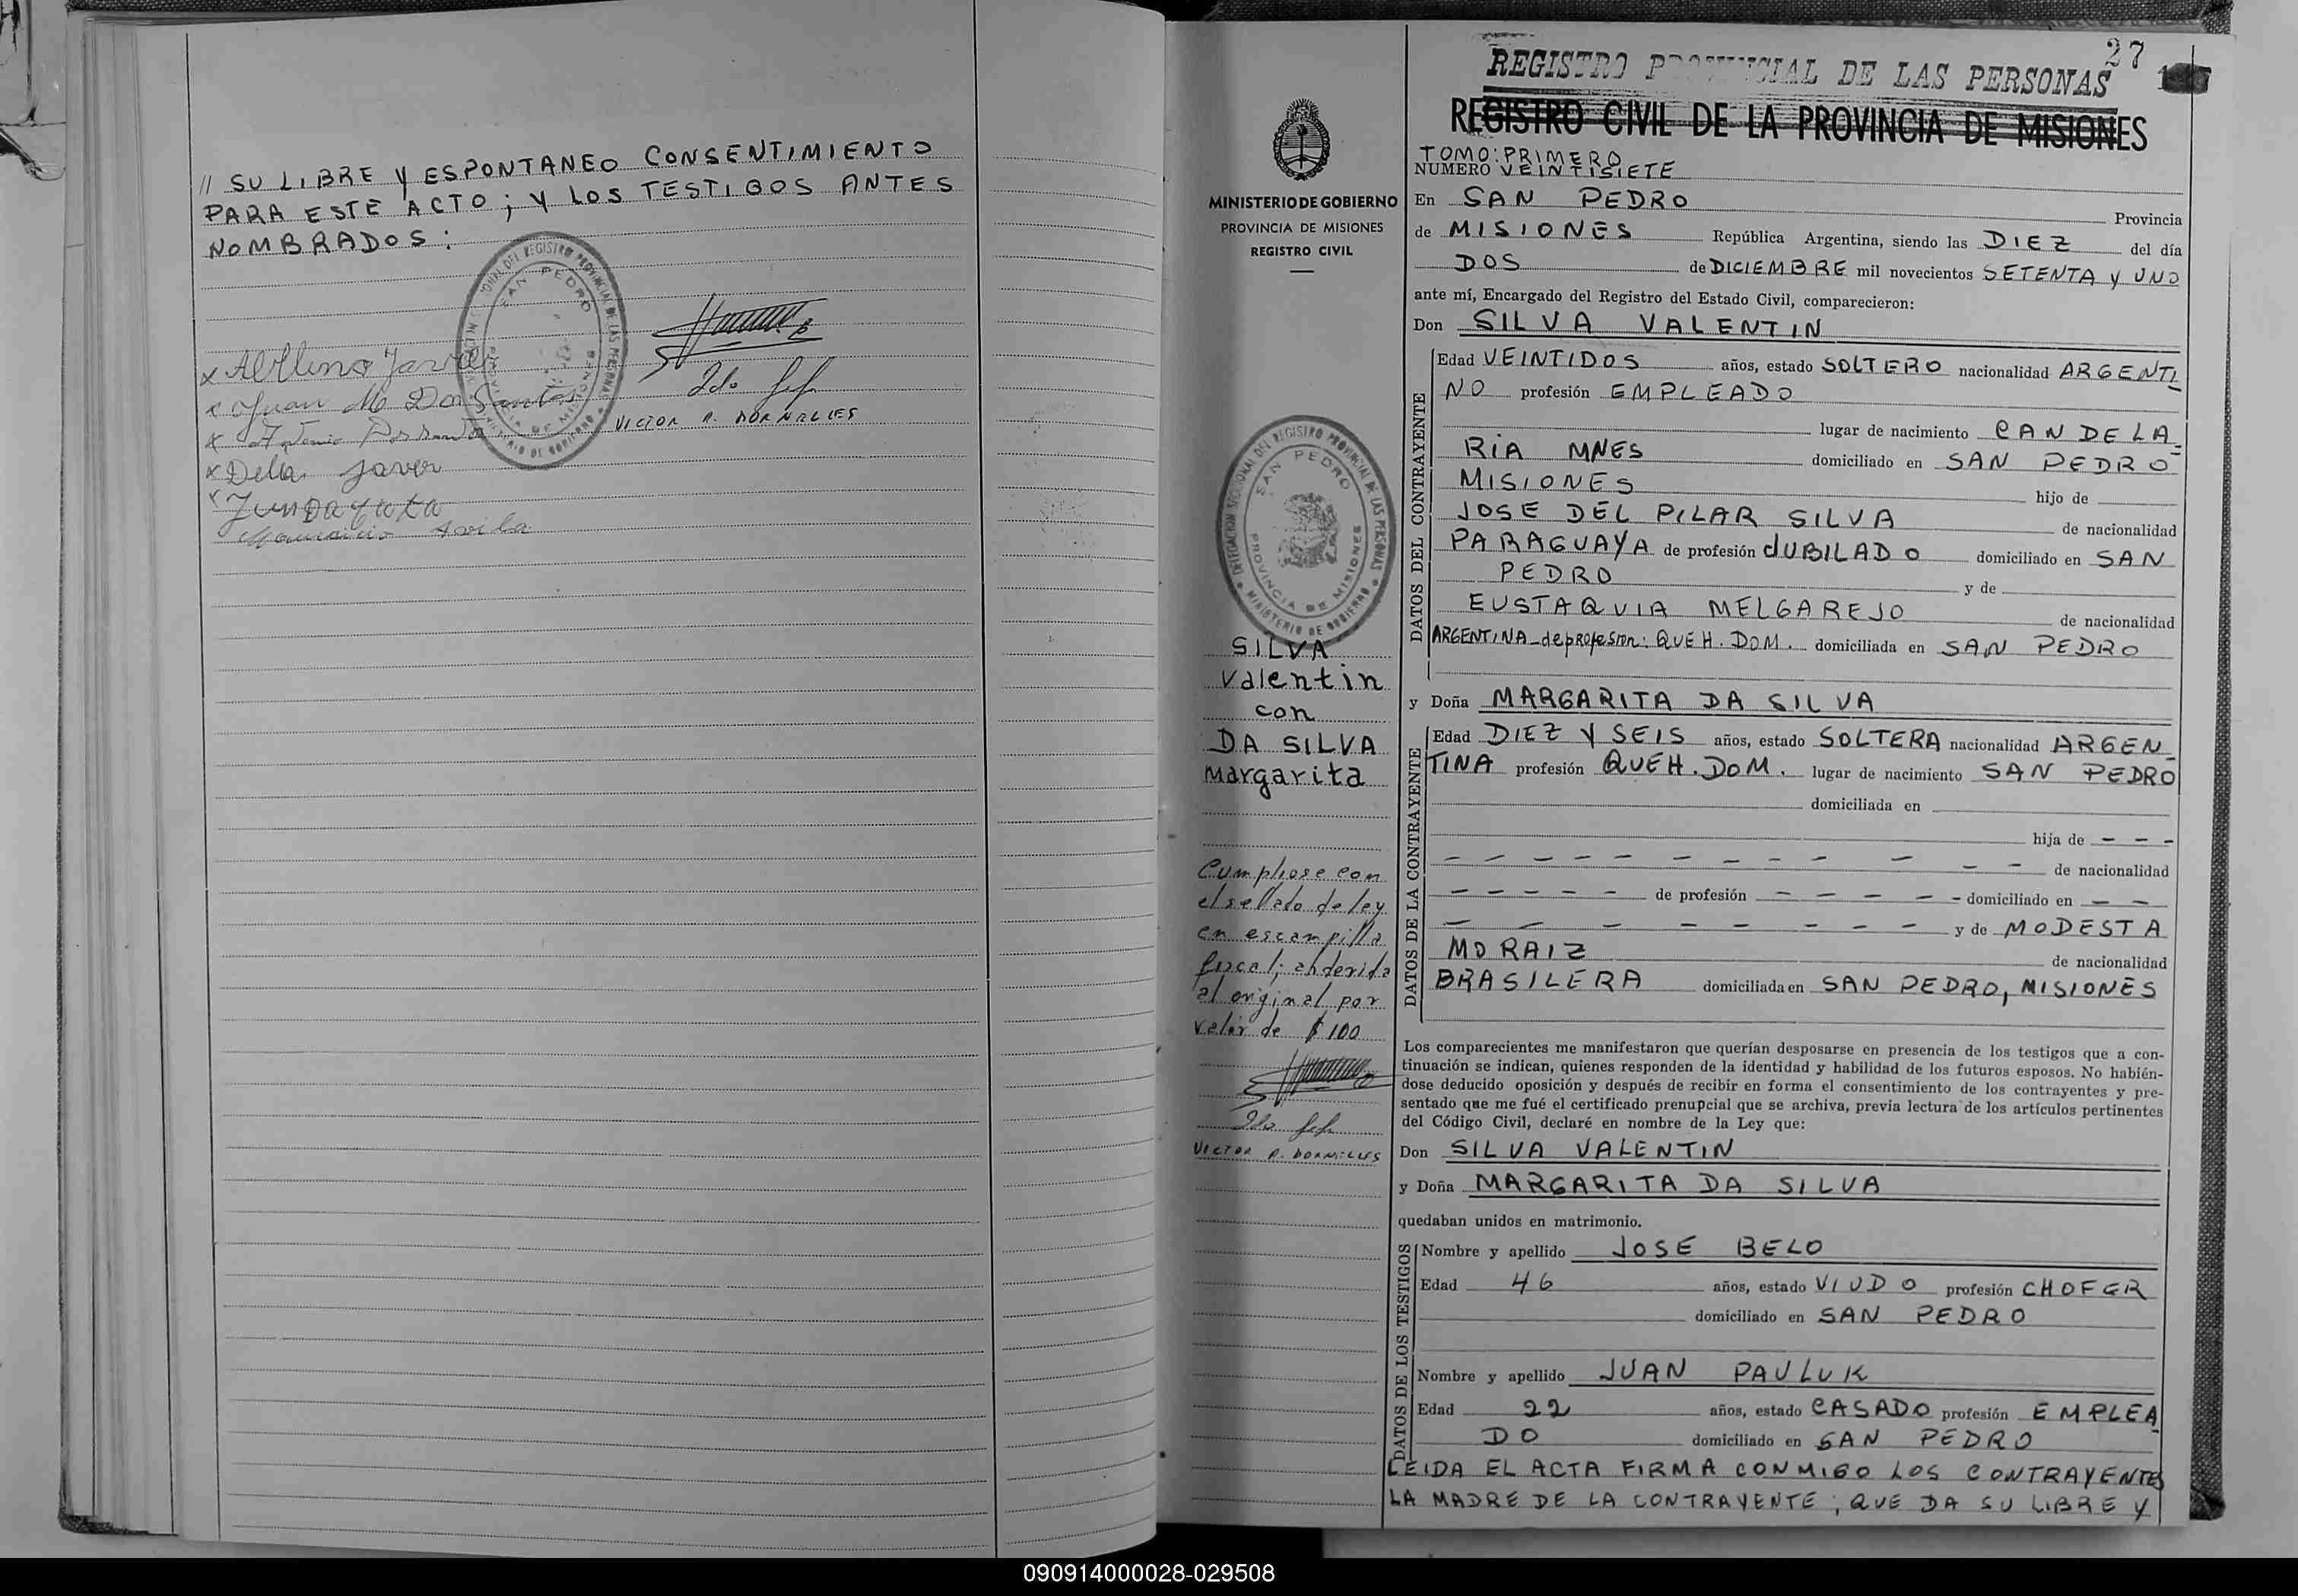 // SU LIBRE Y ESPONTANEO CONSENTIMIENTO
PARA ESTE ACTO; Y LOS TESTIGOS ANTES
NOMBRADOS:
SAN PEDRO
2do Jefe
Juan M Dos Santos
VICTOR R. DORNELLES
Delia Javer
Mauricio Avila
27
REGISTRO PROVINCIAL DE LAS PERSONAS
REGISTRO CIVIL DE LA PROVINCIA DE MISIONES
MINISTERIO DE GOBIERNO
PROVINCIA DE MISIONES
REGISTRO CIVIL
DELEGACION SECCIONAL DEL REGISTRO PROVINCIAL DE LAS PERSONAS
SAN PEDRO
PROVINCIA DE MISIONES
MINISTERIO DE GOBIERNO
SILVA
Valentin
con
DA SILVA
Margarita
Cumpliose con
el sellado de ley
en estampilla
fiscal; ahderida
al original por
valor de $ 100
2do Jefe
VICTOR R. DORNELLES
TOMO: PRIMERO
NUMERO VEINTISIETE
En SAN PEDRO Provincia
de MISIONES República Argentina, siendo las DIEZ del día
DOS de DICIEMBRE mil novecientos SETENTA Y UNO
ante mí, Encargado del Registro del Estado Civil, comparecieron:
Don SILVA VALENTIN
DATOS DEL CONTRAYENTE
Edad VEINTIDOS años, estado SOLTERO nacionalidad ARGENTI
NO profesión EMPLEADO
lugar de nacimiento CANDELA
RIA MNES domiciliado en SAN PEDRO
MISIONES hijo de
JOSE DEL PILAR SILVA de nacionalidad
PARAGUAYA de profesión JUBILADO domiciliado en SAN
PEDRO y de
EUSTAQUIA MELGAREJO de nacionalidad
ARGENTINA - de profesion: QUEH. DOM. domiciliada en SAN PEDRO
y Doña MARGARITA DA SILVA
DATOS DE LA CONTRAYENTE
Edad DIEZ Y SEIS años, estado SOLTERA nacionalidad ARGEN
TINA profesión QUEH. DOM. lugar de nacimiento SAN PEDRO
domiciliada en
hija de - - -
- - - - - - - - - - - de nacionalidad
- - - - - de profesión - - - - - domiciliado en - -
- - - - - - - y de MODESTA
MORAIZ de nacionalidad
BRASILERA domiciliada en SAN PEDRO, MISIONES
Los comparecientes me manifestaron que querían desposarse en presencia de los testigos que a con-
tinuación se indican, quienes responden de la identidad y habilidad de los futuros esposos. No habién-
dose deducido oposición y después de recibir en forma el consentimiento de los contrayentes y pre-
sentado que me fué el certificado prenupcial que se archiva, previa lectura de los artículos pertinentes
del Código Civil, declaré en nombre de la Ley que:
Don SILVA VALENTIN
y Doña MARGARITA DA SILVA
quedaban unidos en matrimonio.
DATOS DE LOS TESTIGOS
Nombre y apellido JOSE BELO
Edad 46 años, estado VIUDO profesión CHOFER
domiciliado en SAN PEDRO
Nombre y apellido JUAN PAULUK
Edad 22 años, estado CASADO profesión EMPLEA
DO domiciliado en SAN PEDRO
LEIDA EL ACTA FIRMA CONMIGO LOS CONTRAYENTES
LA MADRE DE LA CONTRAYENTE; QUE DA SU LIBRE Y
090914000028-029508